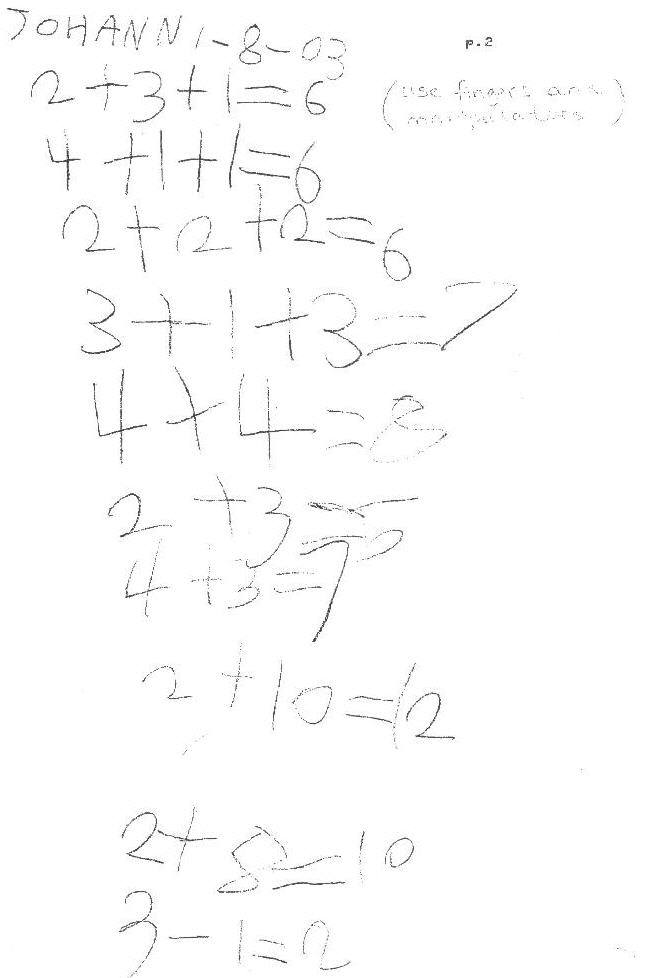 JOHANN 1-8-03
p.2
2+3+1=6
(use fingers and
manipulatives)
4+1+1=6
2+2+2=6
3+1+3=7
4+4=8
2+3=5
4+3=7
2+10=12
2+8=10
3-1=2